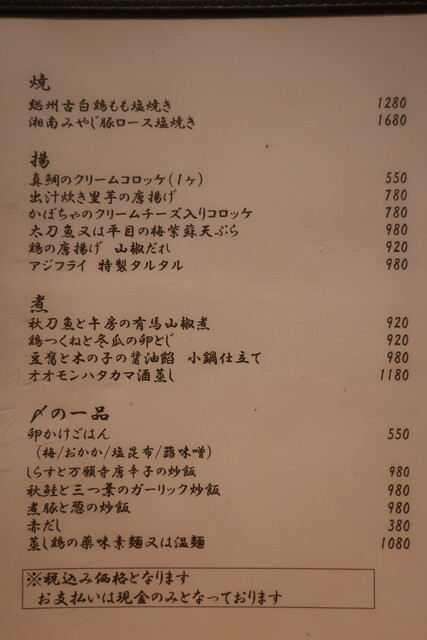 焼
総州古白鶏もも塩焼き 1280
湘南みやじ豚ロース塩焼き 1680
揚
真鯛のクリームコロッケ(1ヶ) 550
出汁炊き里芋の唐揚げ 780
かぼちゃのクリームチーズ入りコロッケ 780
太刀魚又は平目の梅紫蘇天ぷら 980
鶏の唐揚げ 山椒だれ 920
アジフライ 特製タルタル 980
煮
秋刀魚と牛房の有馬山椒煮 920
鶏つくねと冬瓜の卵とじ 920
豆腐と木の子の醤油餡 小鍋仕立て 980
オオモンハタカマ酒蒸し 1180
〆の一品
卵かけごはん 550
(梅/おかか/塩昆布/蕗味噌)
しらすと万願寺唐辛子の炒飯 980
秋鮭と三つ葉のガーリック炒飯 980
煮豚と葱の炒飯 980
赤だし 380
蒸し鶏の薬味素麺又は温麺 1080
※税込み価格となります
お支払いは現金のみとなっております